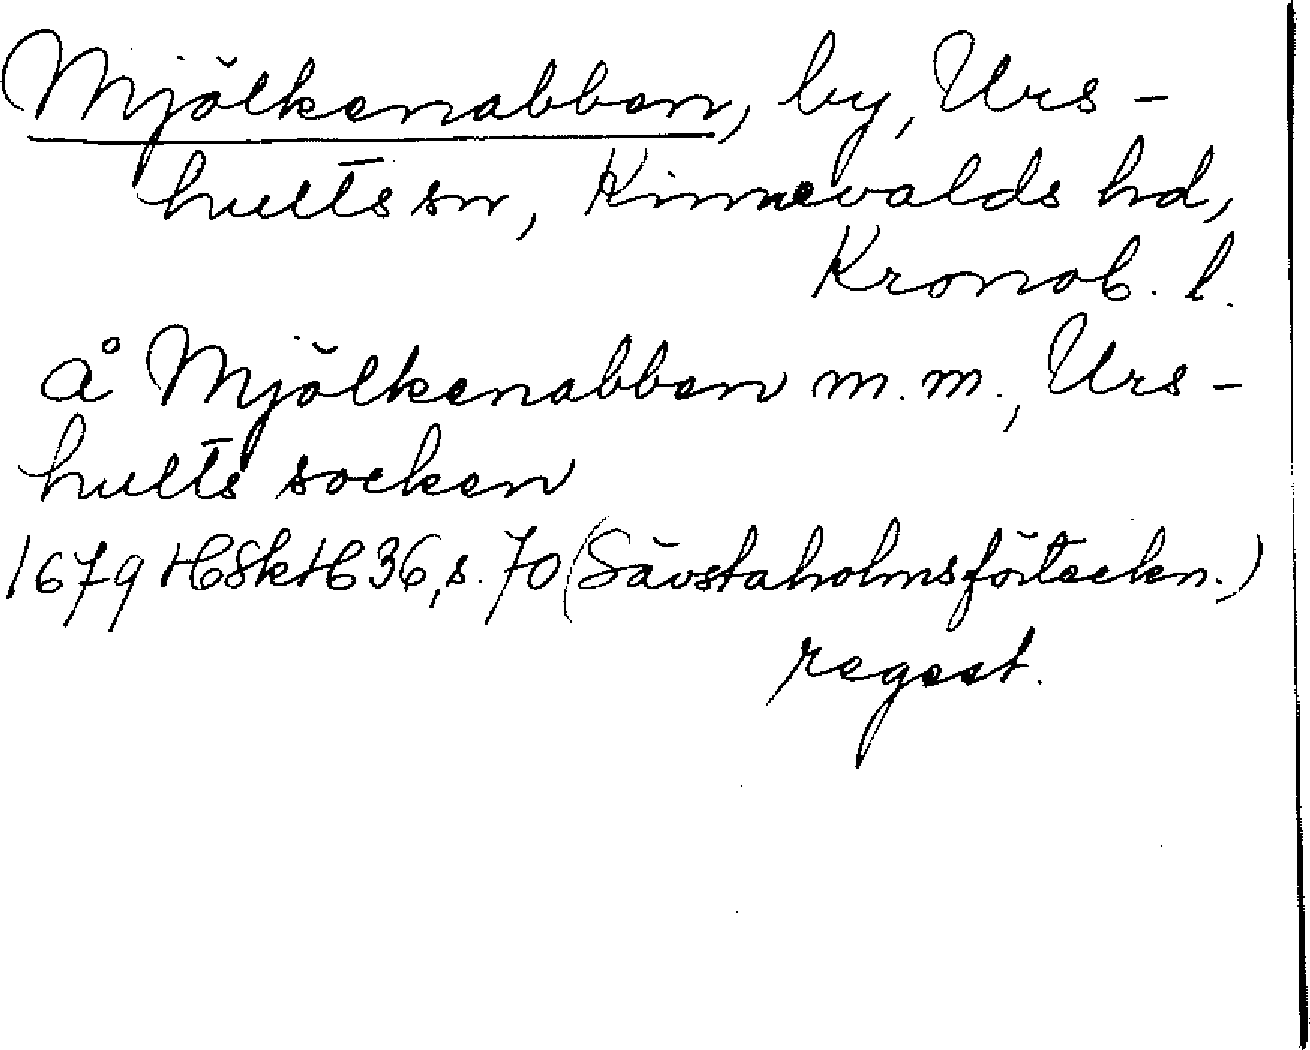 Mjölkenabben, by, Urs-
hults sn, Kinnevalds hd,
Kronob. l.
å Mjölkenabben m.m., Urs-
hults socken
1679 HSkH 36, s. 70 (Sävstaholmsförteckn.)
regest.